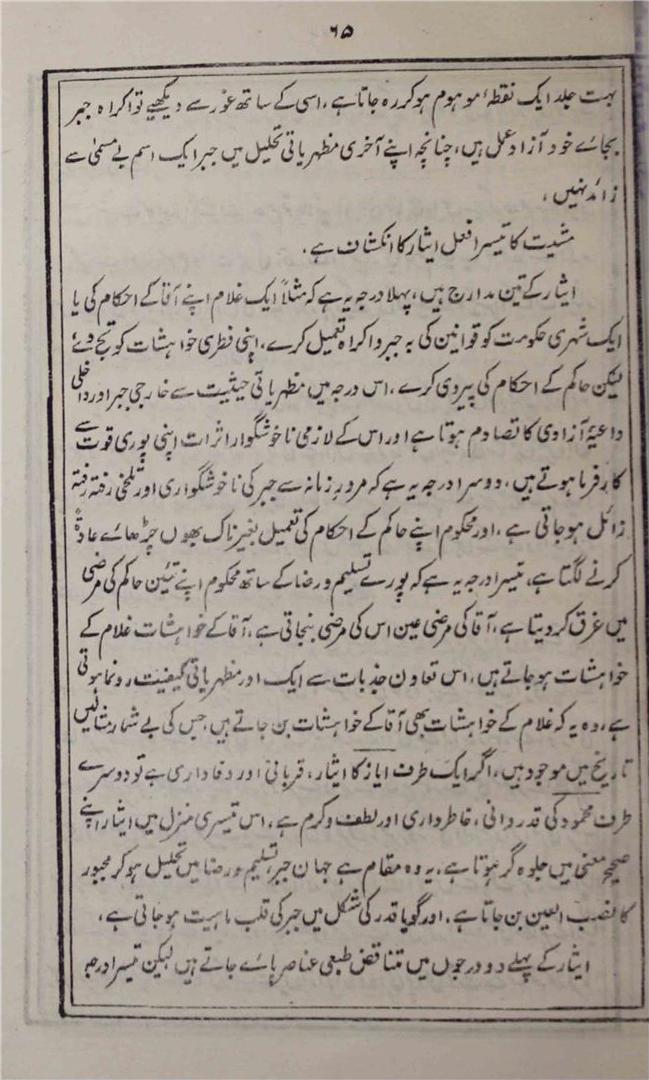 ۶۵
بہت جلد ایک نقطۂ موہوم ہو کر رہ جاتا ہے، اسی کے ساتھ غور سے دیکھیے تو اکراہ جبر
بجائے خود آزاد عمل ہیں، چنانچہ اپنے آخری مظہریاتی تحلیل میں جبر ایک اسم بے مسمیٰ سے
زائد نہیں،
مشیت کا تیسرا فعل ایثار کا انکشاف ہے۔
ایثار کے تین مدارج ہیں، پہلا درجہ یہ ہے کہ مثلاً ایک غلام اپنے آقا کے احکام کی یا
ایک شہری حکومت کو قوانین کی بہ جبر و اکراہ تعمیل کرے، اپنی فطری خواہشات کو تج دے
لیکن حاکم کے احکام کی پیروی کرے، اس درجہ میں مظہریاتی حیثیت سے خارجی جبر اور داخلی
داعیۂ آزادی کا تصادم ہوتا ہے اور اس کے لازمی ناخوشگوار اثرات اپنی پوری قوت سے
کارفرما ہوتے ہیں، دوسرا درجہ یہ ہے کہ مرور زمانہ سے جبر کی ناخوشگواری اور تلخی رفتہ رفتہ
زائل ہو جاتی ہے، اور محکوم اپنے حاکم کے احکام کی تعمیل بغیر ناک بھوں چڑھائے عادۃً
کرنے لگتا ہے، تیسرا درجہ یہ ہے کہ پورے تسلیم و رضا کے ساتھ محکوم اپنے تئین حاکم کی مرضی
میں غرق کر دیتا ہے، آقا کی مرضی عین اس کی مرضی بنجاتی ہے، آقا کے خواہشات غلام کے
خواہشات ہو جاتے ہیں، اس تعاون جذبات سے ایک اور مظہریاتی کیفیت رونما ہوتی
ہے، وہ یہ کہ غلام کے خواہشات بھی آقا کے خواہشات بن جاتے ہیں جس کی بے شمار مثالیں
تاریخ میں موجود ہیں، اگر ایک طرف ایاز کا ایثار، قربانی اور وفاداری ہے تو دوسرے
طرف محمود کی قدردانی، خاطرداری اور لطف و کرم ہے، اس تیسری منزل میں ایثار اپنے
صحیح معنی میں جلوہ گر ہوتا ہے، یہ وہ مقام ہے جہاں جبر، تسلیم و رضا میں تحلیل ہو کر مجبور
کا نصب العین بن جاتا ہے، اور گویا قدر کی شکل میں جبر کی قلب ماہیت ہو جاتی ہے،
ایثار کے پہلے دو درجوں میں متناقض طبعی عناصر پائے جاتے ہیں لیکن تیسرا درجہ